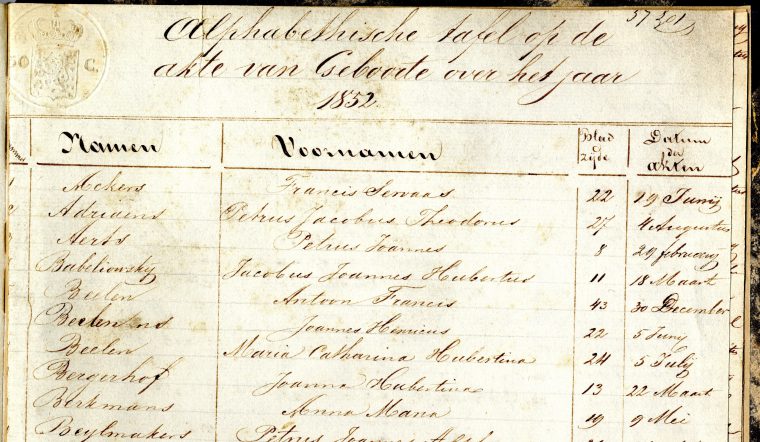 Alphabethische tafel op de
akte van Geboorte over het jaar
1852.
Namen Voornamen Blad zijde Datum der akten
Ackers Francis Servaas 22 19 Junij
Adriaens Petrus Jacobus Theodorus 27 4 Augustus
Aerts Petrus Joannes 8 29 februarij
Babeliowsky Jacobus Joannes Hubertus 11 18 Maart
Beelen Antoon Francis 43 30 December
Joannes Henricus 22 5 Juny
Beelen Maria Catharina Hubertina 24 5 Julij
Bergerhof Joanna Hubertina 13 22 Maart
Berkmans Anna Maria 19 9 Mei
Beylmakers Petrus Joannes